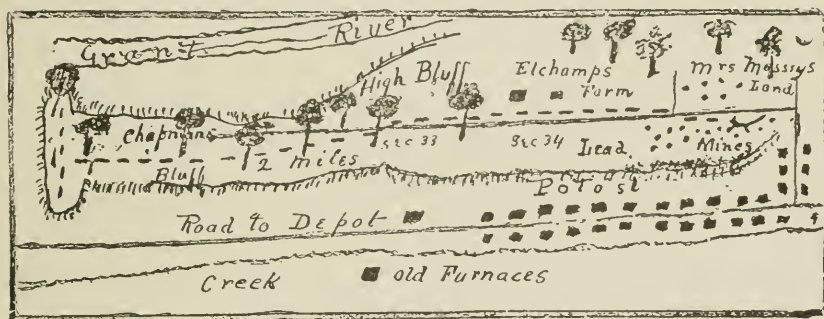 Grant River
High Bluff
Elchamps Farm
Mrs Masssys Land
Chapmans Bluff
2 miles
Sec 33
Sec 34
Lead Mines
Potosi
Road to Depot
Creek
old Furnaces